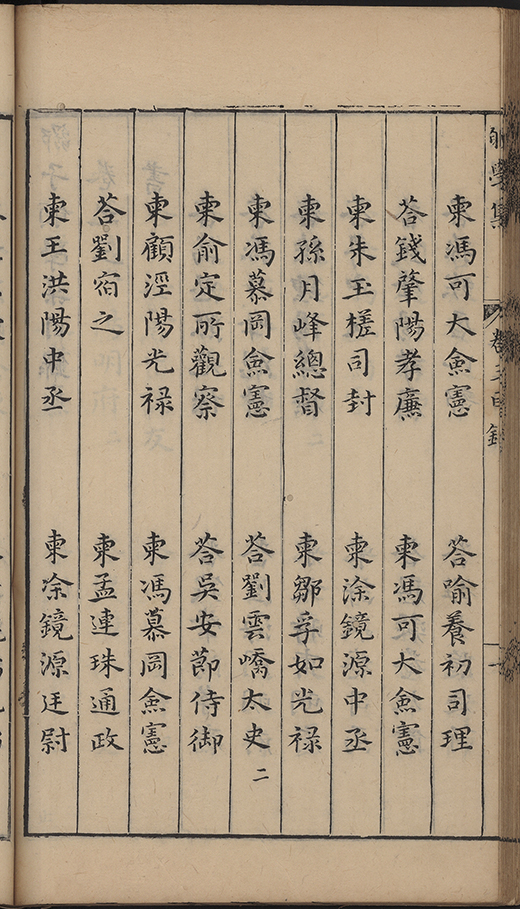 學集
柬馮可大僉憲　荅喻養初司理
荅錢肇陽孝廉　柬馮可大僉憲
柬朱玉槎司封　柬涂鏡源中丞
柬孫月峰總督　柬鄒孚如光禄
柬馮慕岡僉憲　荅劉雲嶠太史二
柬俞定所觀察　荅吳安節侍御
柬顧涇陽光禄　柬馮慕岡僉憲
荅劉宿之　柬孟連珠通政
柬王洪陽中丞　柬涂鏡源廷尉